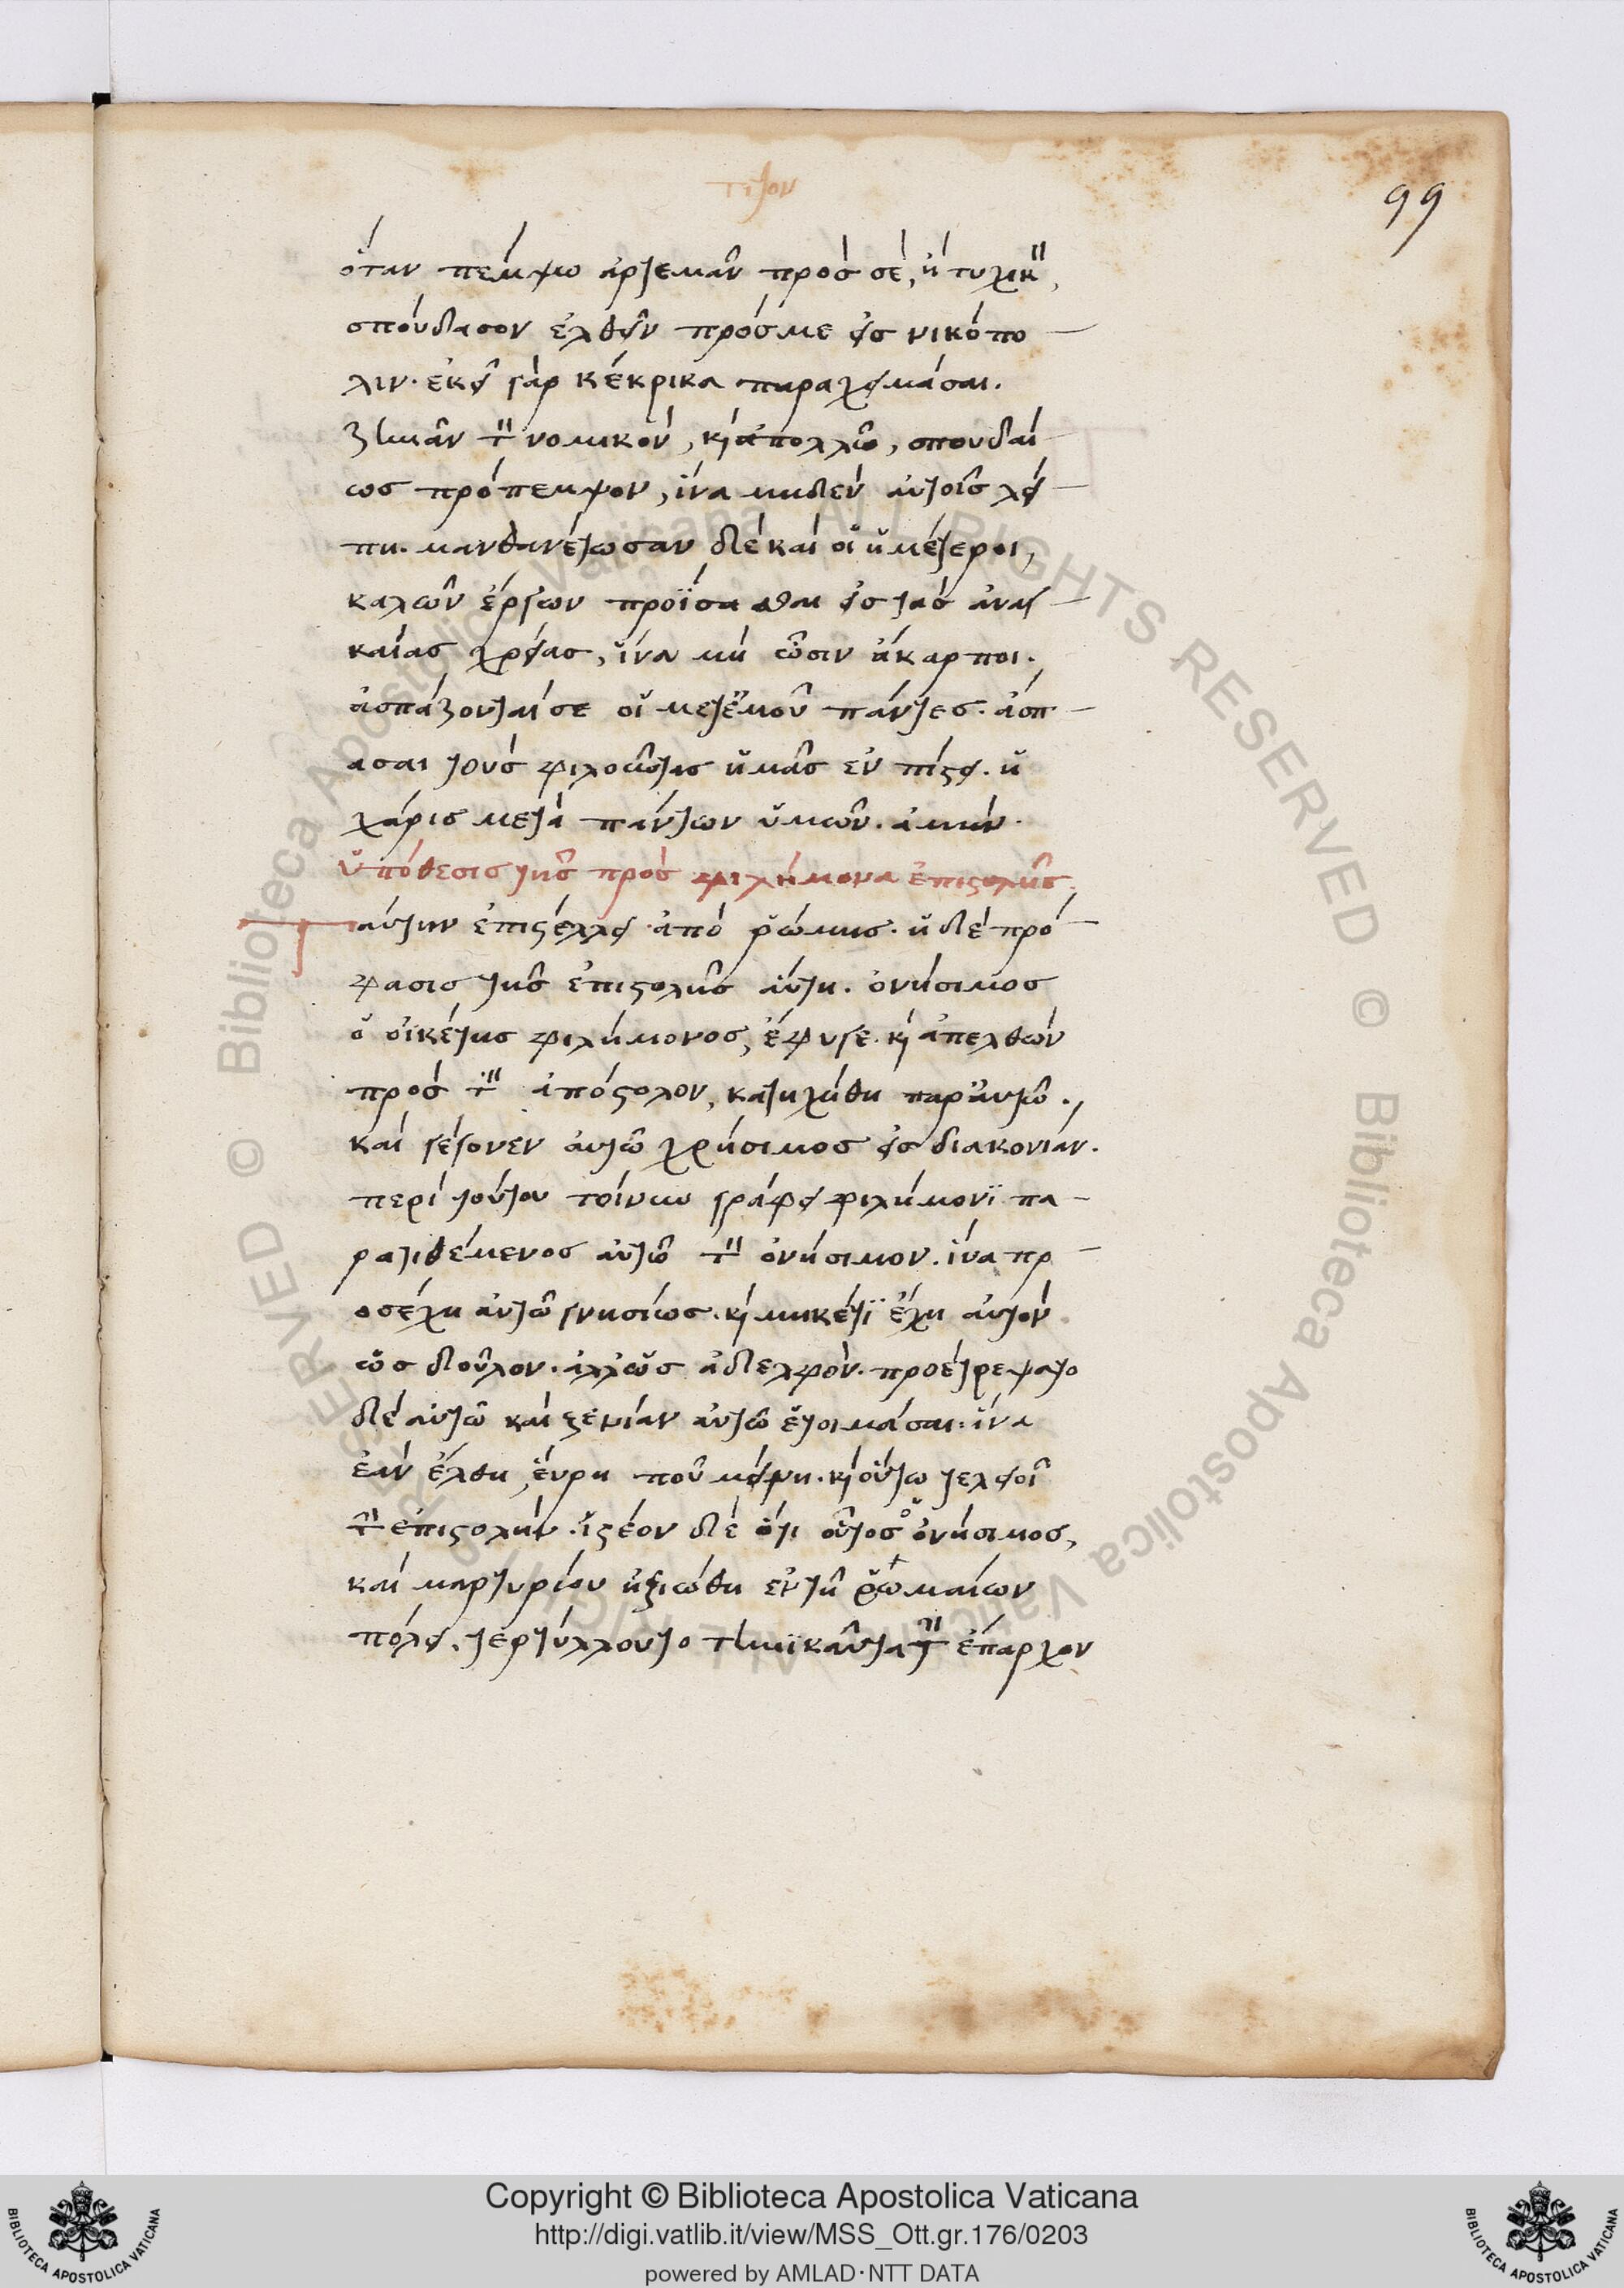 τίτον
99
ὅταν πέμψω ἀρτεμᾶν πρός σὲ, ἢ τυχικὸν,
σπούδασον ἐλθεῖν πρόσμε εἰς νικόπο
λιν· ἐκεῖ γὰρ κέκρικα παραχειμάσαι.
ζηνᾶν τὸν νομικὸν, κ͵ ἀπολλὼ, σπουδαί
ως πρόπεμψον, ἵνα μηδὲν αὐτοῖς λεί
πη. μανθανέτωσαν δὲ καὶ οἱ ὑμέτεροι,
καλῶν ἔργων προΐστασθαι εἰς τὰς ἀναγ
καίας χρείας, ἵνα μὴ ὦσιν ἄκαρποι.
ἀσπάζονταί σε οἱ μετ' ἐμοῦ πάντες. ἄσπ
ασαι τοὺς φιλοῦντας ὑμᾶς ἐν πίστει. ἡ
χάρις μετὰ πάντων ὑμῶν. ἀμήν.
ὑπόθεσις τῆς πρὸς φιλήμονα ἐπιστολῆς.
Ταύτην ἐπιστέλλει ἀπὸ ῥώμης. ἡ δὲ πρό
φασις τῆς ἐπιστολῆς αὕτη. ὀνήσιμος
ὁ οἰκέτης φιλήμονος, ἔφυγε. κ͵ ἀπελθὼν
πρὸς τὸν ἀπόστολον, κατηχήθη παρ' αὐτῶ.
καὶ γέγονεν αὐτῶ χρήσιμος εἰς διακονίαν.
περὶ τούτου τοίνυν γράφει φιλήμονϊ πα
ρατιθέμενος αὐτῶ τὸν ὀνήσιμον. ἵνα πρ
οσέχη αὐτῶ γνησίως. κ͵ μηκέτϊ ἔχη αὐτὸν
ὡς δοῦλον. ἀλλ' ὡς ἀδελφόν. προετρέψατο
δὲ αὐτῶ καὶ ξενίαν αὐτῶ ἑτοιμάσαι. ἵνα
ἐὰν ἔλθη, εὕρη ποῦ μείνη. κ͵ οὕτω τελειοῖ
τὴν ἐπιστολήν. ἰστέον δὲ ὅτι οὗτος ὁ ὀνήσιμος,
καὶ μαρτυρίου ἠξιώθη ἐν τῆ ῥωμαίων
πόλει. τερτύλλου τὸ τηνϊκαῦτα τὴν ἔπαρχον
Copyright © Biblioteca Apostolica Vaticana
http://digi.vatlib.it/view/MSS_Ott.gr.176/0203
powered by AMLAD·NTT DATA
BIBLIOTECA APOSTOLICA VATICANA
BIBLIOTECA APOSTOLICA VATICANA
© Biblioteca Apostolica Vaticana ALL RIGHTS RESERVED © Biblioteca Apostolica Vaticana ALL RIGHTS RESERVED